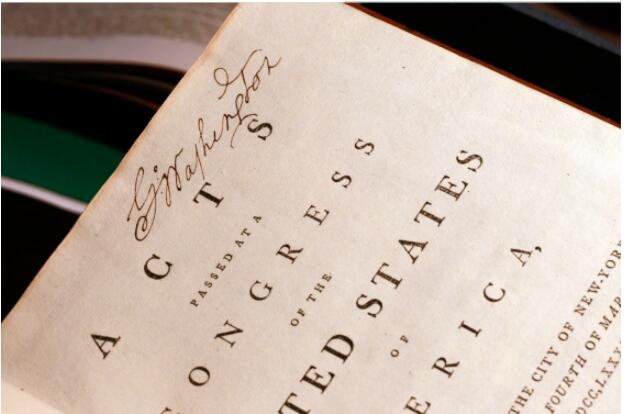 Go: Washington
ACTS
PASSED AT A
ONGRESS
OF THE
TED STATES
OF
ERICA,
HE CITY OF NEW-YORK
FOURTH OF MAR
CCLXXX